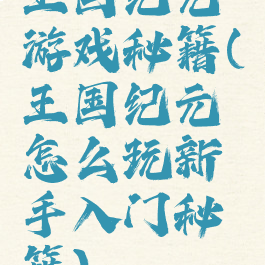 王国纪元
游戏秘籍(
王国纪元
怎么玩新
手入门秘
籍)